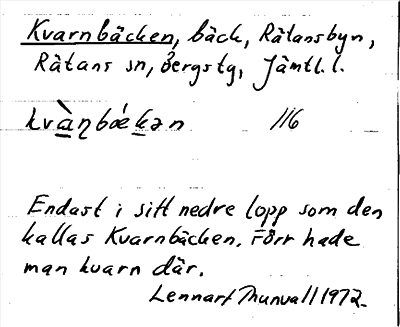 Kvarnbäcken, bäck, Rätansbyn,
Rätans sn, Bergs tg, Jämtl. l.
kvà̱ɳbǽḵən 116
Endast i sitt nedre lopp som den
kallas Kvarnbäcken. Förr hade
man kvarn där.
Lennart Thunvall 1972